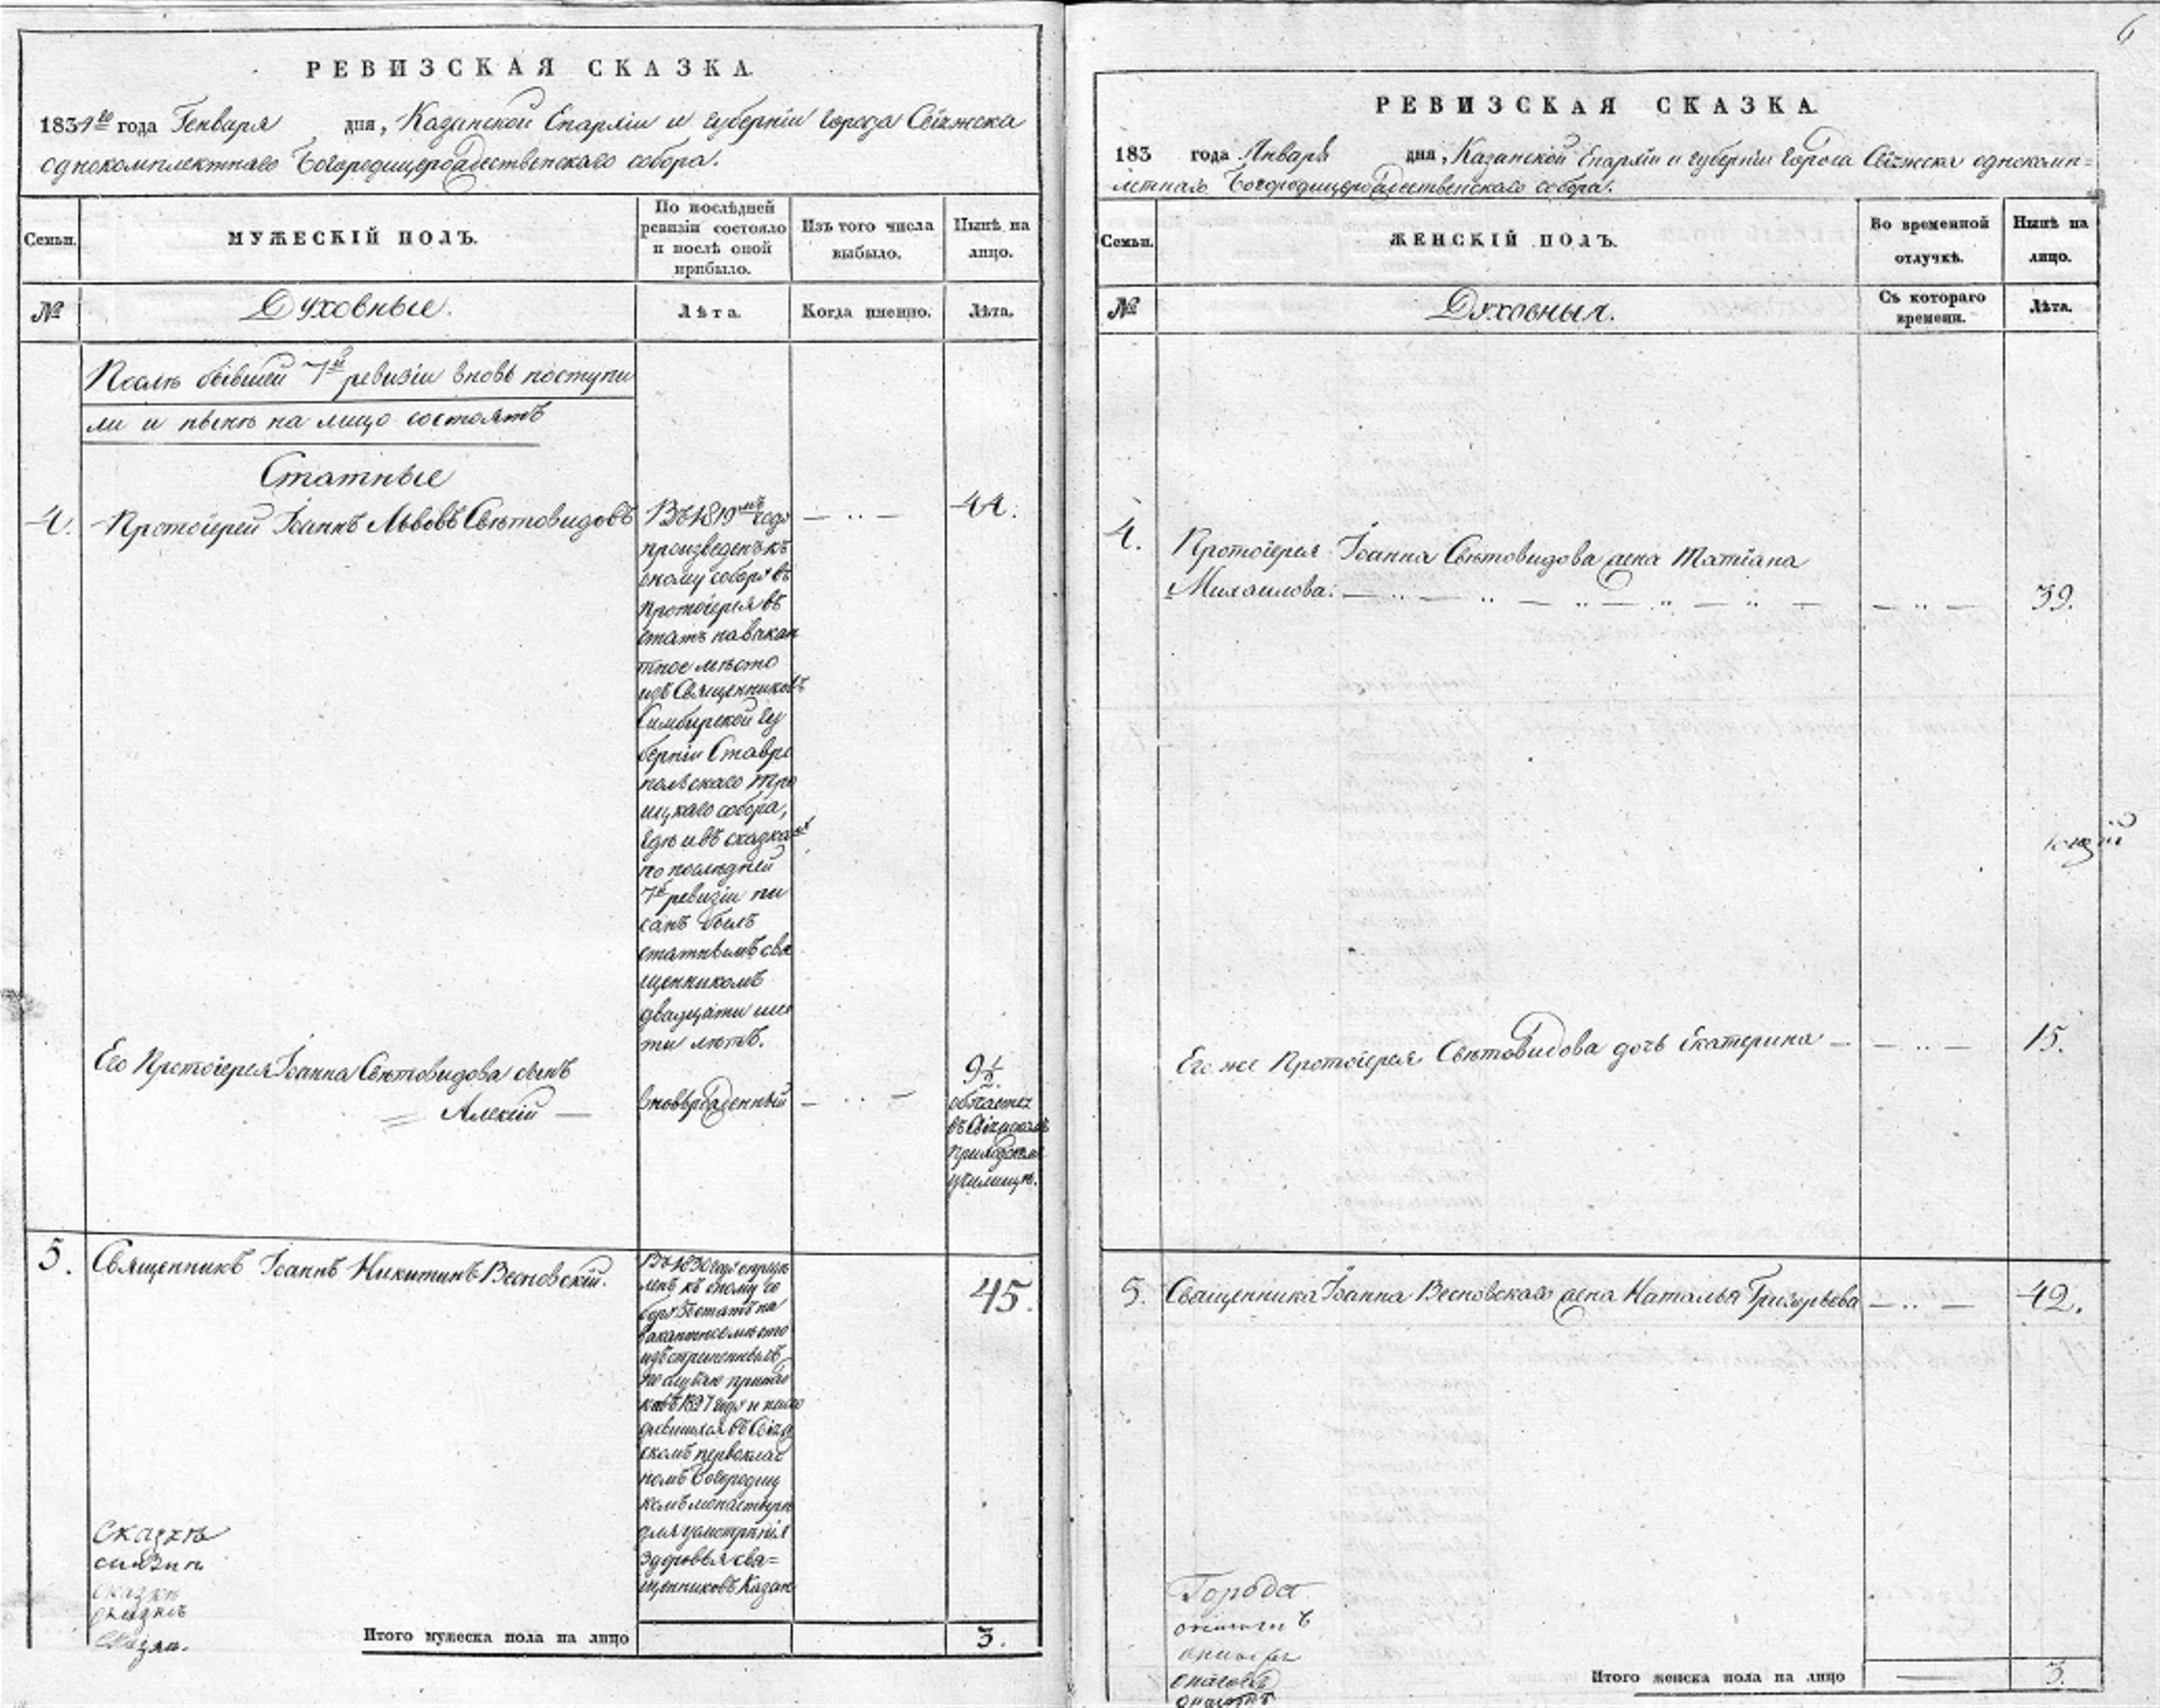 РЕВИЗСКАЯ СКАЗКА
1834го года Генваря дня, Казанской Епархіи и губерніи города Свіяжска
однокомплектнаго Богородицерождественскаго собора.
Семьи.
МУЖЕСКІЙ ПОЛЪ.
По послѣдней
ревизіи состояло
и послѣ оной
прибыло.
Изъ того числа
выбыло.
Нынѣ на
лицо.
№
Духовные.
Лѣта.
Когда именно.
Лѣта.
Послѣ бывшей 7й ревизіи вновь поступи
ли и нынѣ на лицо состоятъ
Статные
4. Протоіерей Іоаннъ Львовъ Свѣтовидовъ
Въ 1819мъ году
произведенъ къ
оному собору въ
протоіерея въ
статъ на вакан
тное мѣсто
изъ Священниковъ
Симбирской гу
берніи Ставро
польскаго Трои
цкаго собора,
гдѣ и въ сказкахъ
по послѣдней
7й ревизіи пи
санъ былъ
статнымъ свя
щенникомъ
двадцати шес
ти лѣтъ.
44.
Его Протоіерея Іоанна Свѣтовидова сынъ
Алексій
вноворожденный
9½
обучается
въ Свіяжскомъ
приходскомъ
училищѣ.
5. Священникъ Іоаннъ Никитинъ Весновскій.
Въ 1830 году опредѣ
ленъ къ оному со
бору въ статъ на
вакантное мѣсто
по случаю
въ 1827 году и нахо
дившихся въ Свіяж
скомъ первоклас
номъ Богородиц
комъ монастырѣ
для усмотрѣнія
здоровья свя=
щенниковъ Казан
45.
Сказкѣ
сказкѣ
сказкѣ
сказка.
Итого мужеска пола на лицо
3.
6
РЕВИЗСКАЯ СКАЗКА.
183 года Января дня, Казанской Епархіи и губерніи города Свіяжска однокомп=
летнаго Богородицерождественскаго собора.
Семьи.
ЖЕНСКІЙ ПОЛЪ.
Во временной
отлучкѣ.
Нынѣ на
лицо.
№
Духовныя.
Съ котораго
времени.
Лѣта.
4. Протоіерея Іоанна Свѣтовидова жена Татіана
Михаилова:
39.
Его же Протоіерея Свѣтовидова дочь Екатерина
15.
5. Священника Іоанна Весновскаго жена Наталья Григорьева
42.
Города
Итого женска пола на лицо
3.